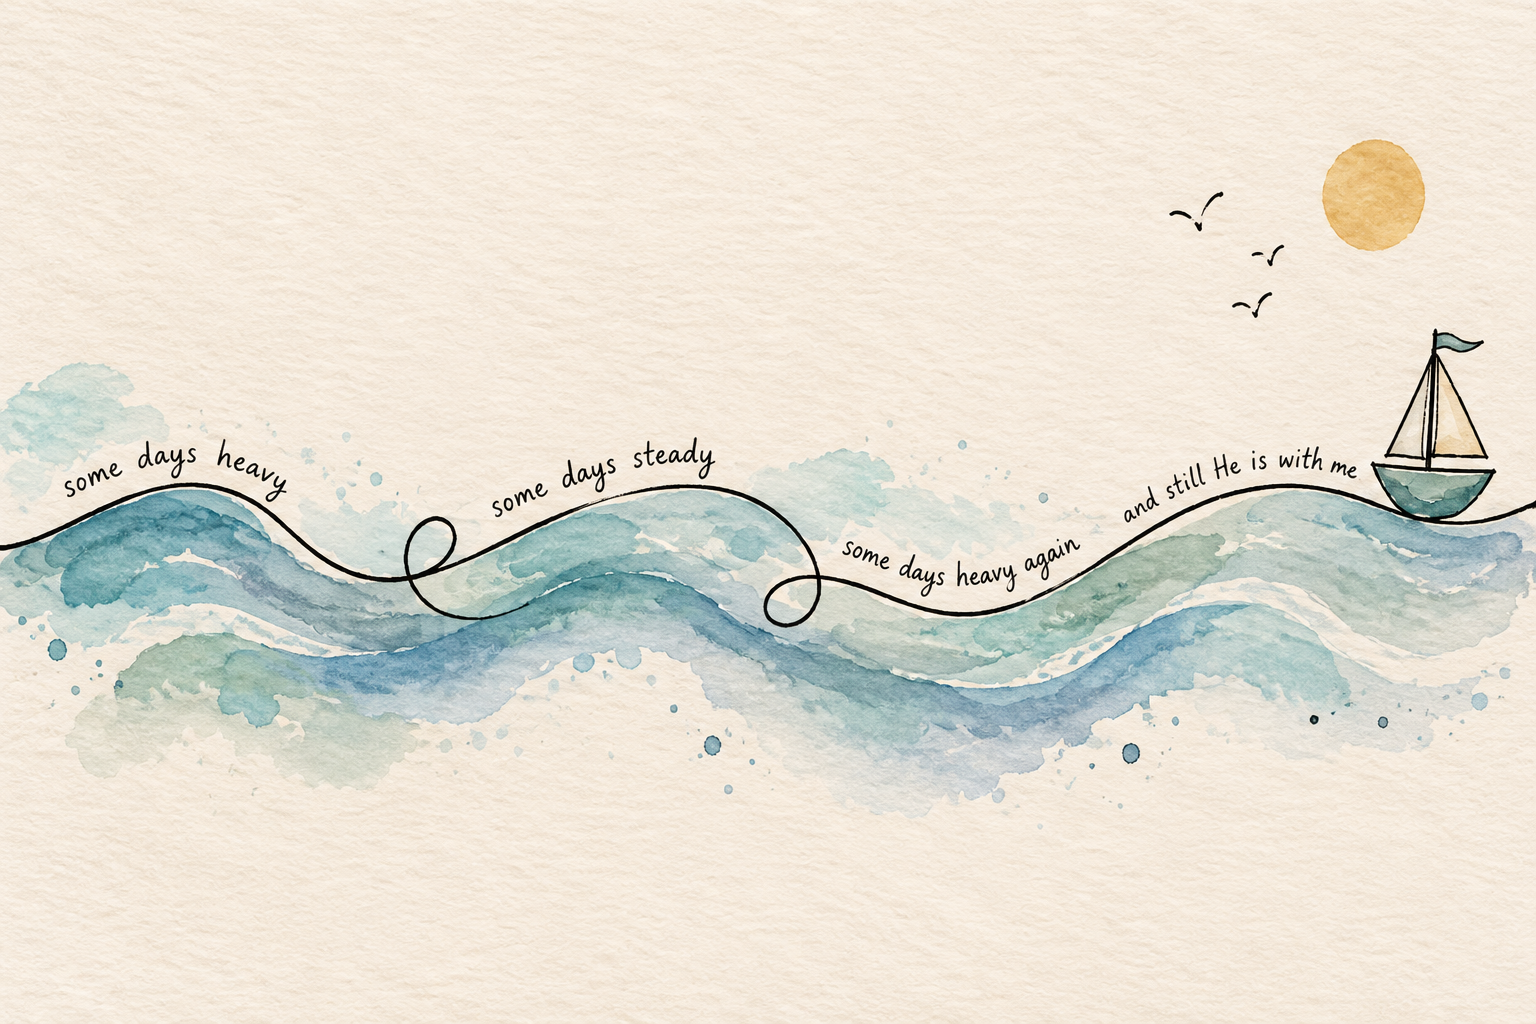 some days heavy
some days steady
some days heavy again
and still He is with me